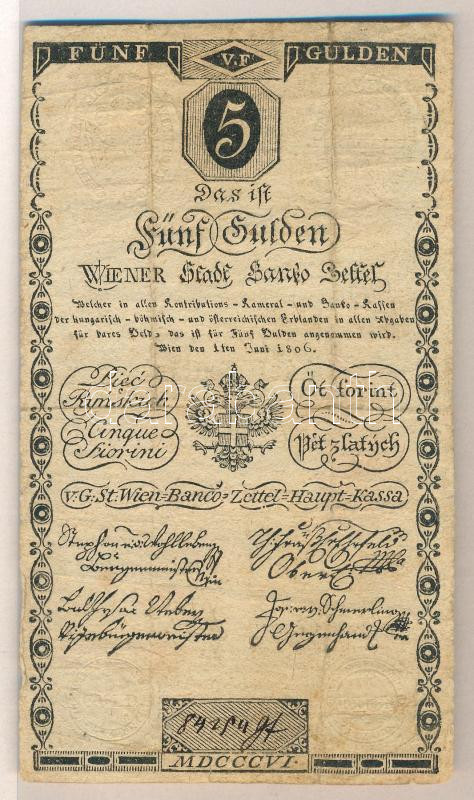 FÜNF V.F GULDEN
5
Das ist
Fünf Gulden
WIENER Stadt Banko Zettel
Welcher in allen Kontributions-Kameral-und Banko-Kassen
der hungarisch-böhmisch-und österreichischen Erblanden in allen Abgaben
für bares Geld, das ist für Fünf Gulden angenommen wird.
Wien den 1ten Juni 1806.
Pięć
Ryńskich
Cinque
Fiorini
Öt forint
Pět zlatých
v. G: St: Wien=Banco=Zettel=Haupt=Kassa
Bürgermeister
Vizebürgermeister
MDCCCVI.
darabanth